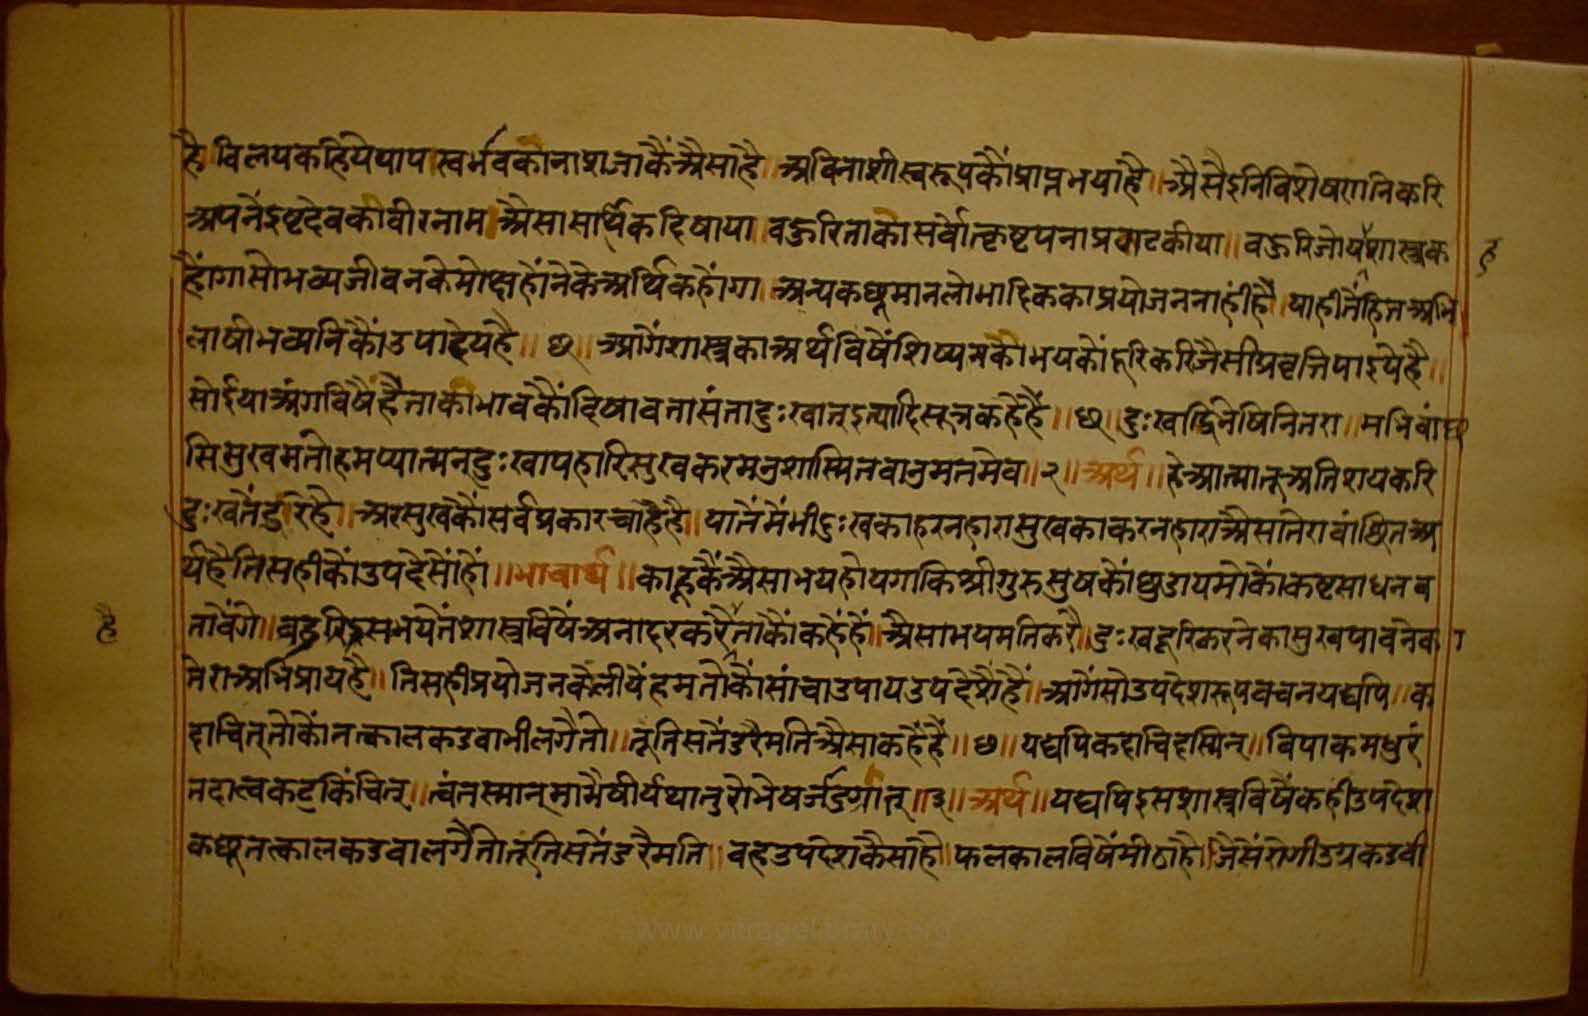 है विलयकहियेपाप स्वर्भवकौनाशजाकैंअैसाहै॥ अविनाशीस्वरूपकौंप्राप्तभयाहै॥ अैसैइनिविशेषणनिकरि
अपनेंइष्टदेवकौवीरनाम अैसासार्थिकदिषाया॥ बहुरिताकौसर्वोत्कृष्टपनाप्रगटकीया॥ बहुरिजोयशास्त्रक ह
हौंगासोभव्यजीवनकेमोक्षहोंनेकेअर्थिकहोंगा॥ अन्यकछूमानलोभादिककाप्रयोजननाहींहै॥ याहीतेंहितअभि
लाषीभव्यनिकौंउपादेयहै॥ छ॥ आगेंशास्त्रकाअर्थविषेंशिष्यनकौभयकोंदूरिकरिजैसीप्रवृत्तिपाइयेहै॥
सोईयाअंगविषैंहैताकीभावकौंदिषावतासंतादुःखात्इत्यादिसूत्रकहेंहैं॥ छ॥ दुःखाद्विभेषिनितरा॥ मभिवांछ
सिसुखमतोहमप्यात्मनदुःखापहारिसुखकरमनुशास्मितवानुमतमेव॥ २॥ अर्थ॥ हेआत्मातूअतिशयकरि
दुःखतेंडरेहै॥ अरसुखकौंसर्वप्रकारचाहैहै॥ यातेंमेंभीदुःखकाहरनहारासुखकाकरनहाराअैसातेरावांछितअ
र्थहैतिसहीकौंउपदेसौंहौं॥ भावार्थ॥ काहूकैंअैसाभयहोयगाकिश्रीगुरुसुषकौंछुडायमोकौंकष्टसाधनब
है तावेंगे॥ बहुरिइसभयतेंशास्त्रविषेंअनादरकरैताकौंकहेंहैं॥ अैसाभयमतिकरै॥ दुःखदूरिकरनेकासुखपावनेका
तेराअभिप्रायहै॥ तिसहीप्रयोजनकैलीयेंहमतोकौंसांचाउपायउपदेशेंहैं॥ आगेंसोउपदेशरूपवचनयद्यपि॥ क
दाचित्तोकौंतत्कालकडवाभीलगैतो॥ तूतिसतेंडरैमतिअैसाकहेंहैं॥ छ॥ यद्यपिकदाचिदस्मिन्॥ विपाकमधुरं
तदात्वकटुकिंचित्॥ त्वंतस्मान्माभैषीर्यथातुरोभेषजाडुग्रात्॥ ३॥ अर्थ॥ यद्यपिइसशास्त्रविषेंकहीउपदेश
कछूतत्कालकडवालगैतोतूंतिसतेंडरैमति॥ वहउपदेशकैसाहै॥ फलकालविषेंमीठाहै॥ जैसेंरोगीउग्रकडवी
www.vitragelibrary.org